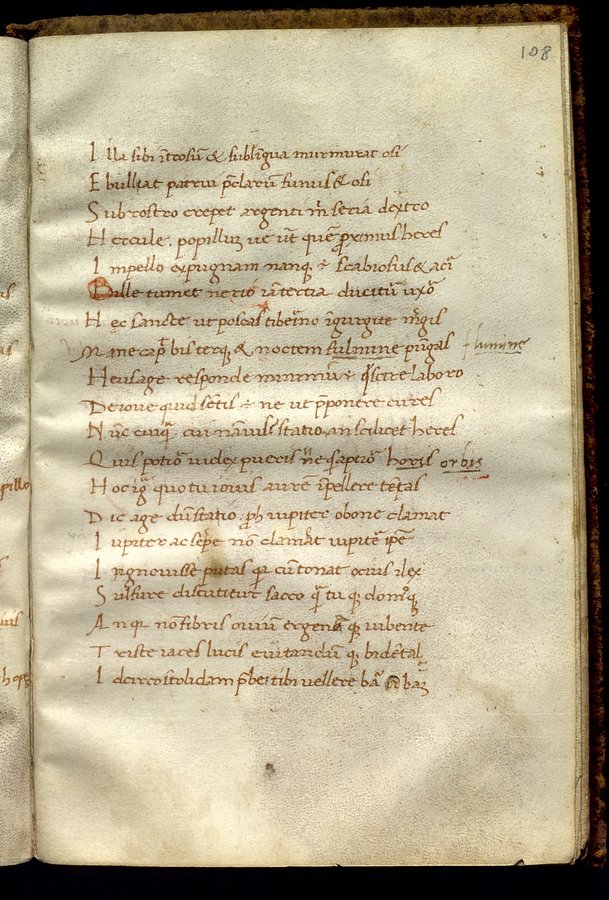 108
Illa sibi ĩtrosũ & sub lĩgua murmurat osi
Ebulliat patrui p̃clarũ funus & osi
Sub rostro crepet argenti m̃ seria dextro
Hercule. pupillũ ue ut quẽ proximus heres
Impello expugnam nanq; ẽ scabiosus & acri
Bille tumet nerio iã tertia ducitur uxor
Hec sancte ut poscas tiberino ĩ gurgite mergis
Mane caput bis terq; & noctem fulmine purgas
fumine
Heus age responde minimũ ẽ qd scire laboro
De ioue quid sentis ẽ ne ut p̃ponere cures
Nũc cuiq̃ cuinam uis statio an scilicet heres
Quis potior iudex pueris ne aptior horis orbis
Hoc igr̃ quo tu iouis aurẽ ĩpellere tẽtas
Dic age dũ statio, proh iupiter o bone clamat
Iupiter ac sepe non clamat iupiter ipe
Ignouisse putas quia cũ tonat ocius ilex
Sulfure discutitur sacro quã tu q; domusq;
An quia non fibris ouium ergenna q; iubente
Triste iaces lucis euitandum q; bidental
Idcirco stolidam p̃bet tibi uellere barbã